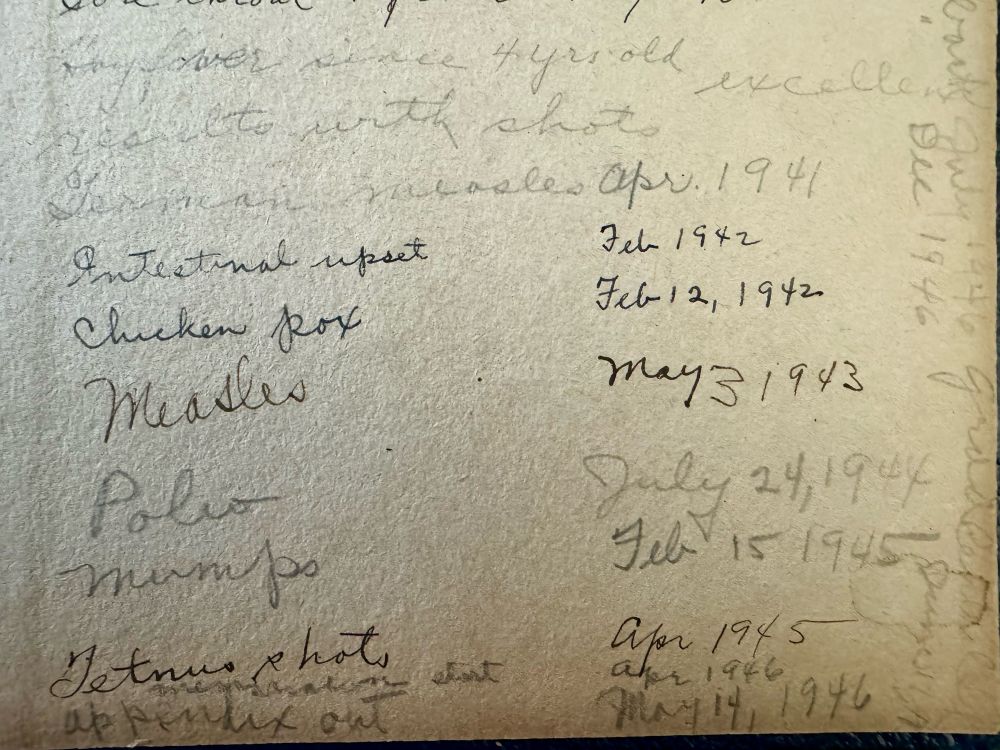 Hayfever since 4yrs old excellent
results with shots
German measles Apr. 1941
Intestinal upset Feb 1942
Chicken pox Feb 12, 1942
Measles May 3 1943
Polio July 24, 1944
Mumps Feb 15 1945
Tetnus shots Apr 1945
menstration start Apr 1946
appindix out May 14, 1946
July 1946
Dec 1946